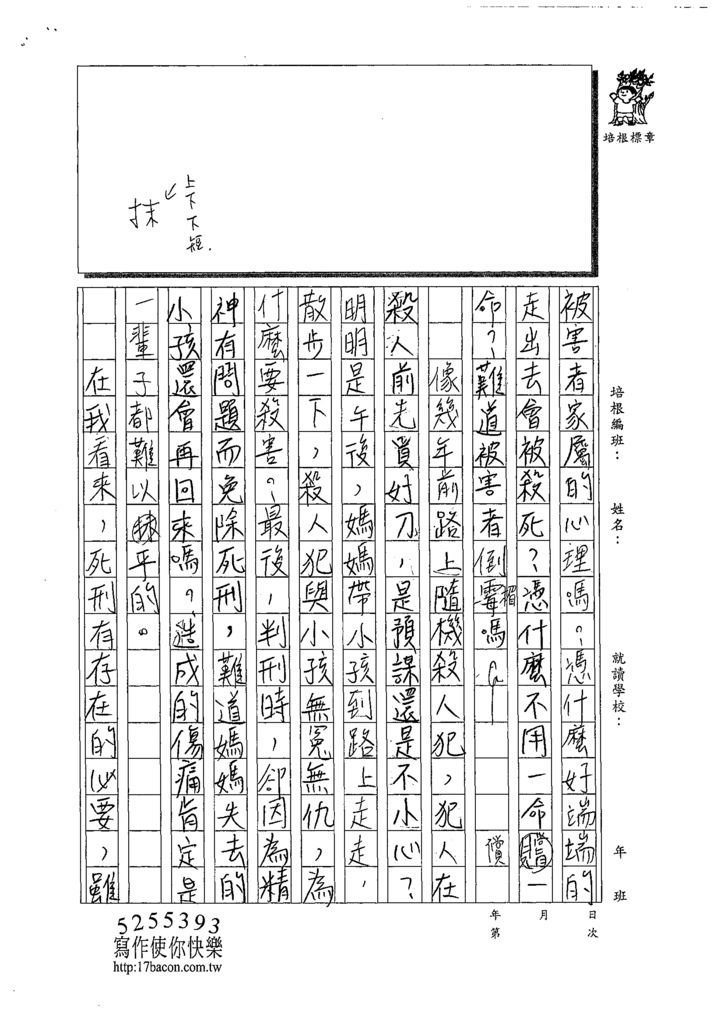 培根標章
上下下短.
抹
培根編班：
姓名：
就讀學校：
年 班
被害者家屬的心理嗎？憑什麼好端端的
走出去會被殺死？憑什麼不用一命賠一
償
命？難道被害者倒霉嗎？
楣
像幾年前路上隨機殺人犯，犯人在
殺人前先買好刀，是預謀還是不小心？
明明是午後，媽媽帶小孩到路上走走，
散步一下，殺人犯與小孩無冤無仇，為
什麼要殺害？最後，判刑時，卻因為精
神有問題而免除死刑，難道媽媽失去的
小孩還會再回來嗎？造成的傷痛肯定是
一輩子都難以平的。
在我看來，死刑有存在的必要，雖
年 月 日
第 次
5255393
寫作使你快樂
http:17bacon.com.tw